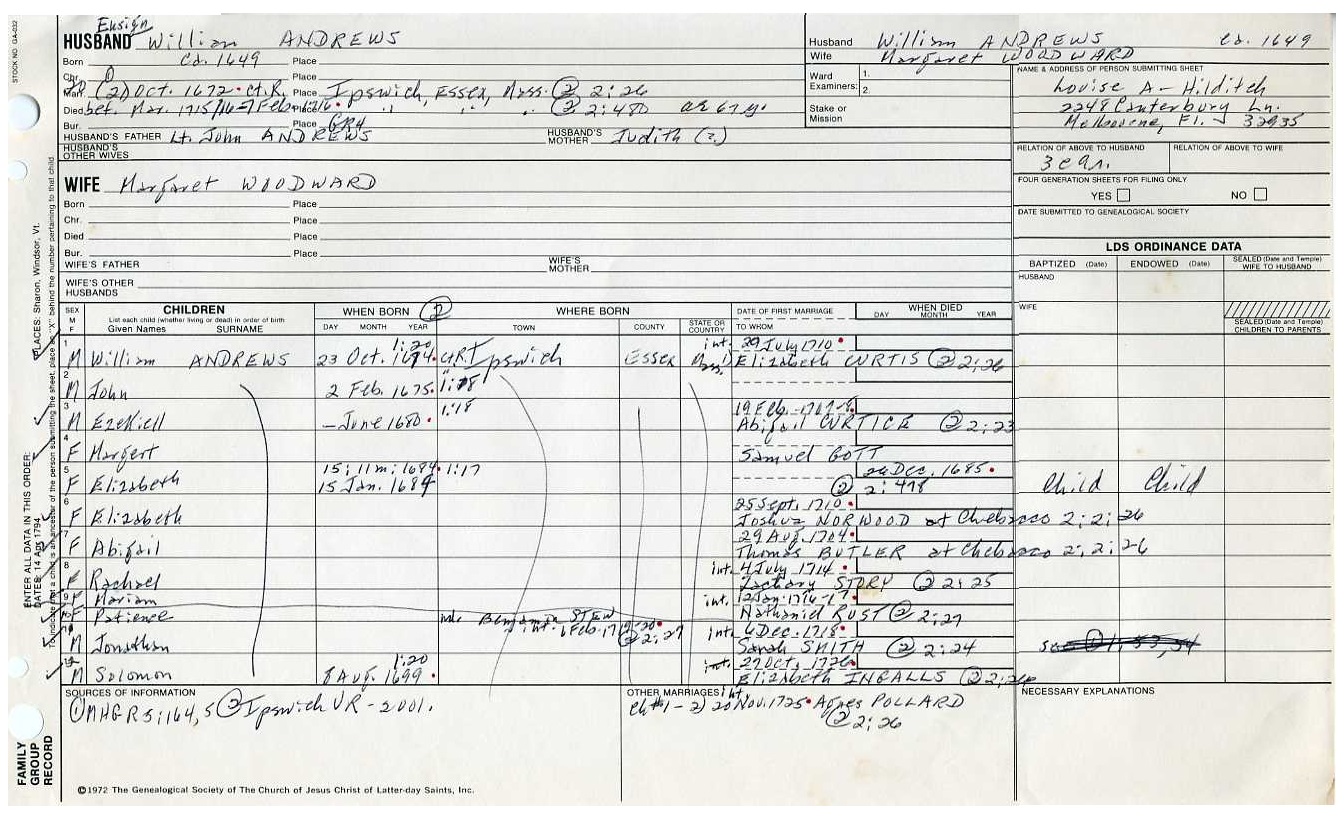 STOCK NO. GA-032
Ensign
HUSBAND William ANDREWS
Born Ca. 1649 Place
Chr. Place
Marr. (2) Oct. 1672. ct.R. Place Ipswich, Essex, Mass. ② 2:26
Died bet. Mar. 1715/16-7 Feb. 1716. Place " " " ② 2:480 ae 67 y.
Bur. Place GR4
HUSBAND'S FATHER Lt. John ANDREWS HUSBAND'S MOTHER Judith (?)
HUSBAND'S OTHER WIVES
WIFE Margaret WOODWARD
Born Place
Chr. Place
Died Place
Bur. Place
WIFE'S FATHER WIFE'S MOTHER
WIFE'S OTHER HUSBANDS
Husband William ANDREWS Ca. 1649
Wife Margaret WOODWARD
Ward Examiners: 1.
2.
Stake or Mission
NAME & ADDRESS OF PERSON SUBMITTING SHEET
Louise A. Hilditch
2248 Canterbury Ln.
Melbourne, Fl. 32935
RELATION OF ABOVE TO HUSBAND RELATION OF ABOVE TO WIFE
FOUR GENERATION SHEETS FOR FILING ONLY
YES NO
DATE SUBMITTED TO GENEALOGICAL SOCIETY
LDS ORDINANCE DATA
BAPTIZED (Date) ENDOWED (Date) SEALED (Date and Temple) WIFE TO HUSBAND
HUSBAND
WIFE
SEALED (Date and Temple) CHILDREN TO PARENTS
SEX M F
CHILDREN
List each child (whether living or dead) in order of birth
Given Names SURNAME
WHEN BORN ②
DAY MONTH YEAR
WHERE BORN
TOWN COUNTY STATE OR COUNTRY
DATE OF FIRST MARRIAGE
TO WHOM
WHEN DIED
DAY MONTH YEAR
1 1:20 int. 29 July 1710
M William ANDREWS 23 Oct. 1674. Ct.R. Ipswich Essex Mass. Elizabeth CURTIS ② 2:26
2
M John 2 Feb. 1675. 1:18
3 1:18 19 Feb. 1707-8
M Ezekiell - June 1680 Abigail CURTICE ② 2:23
4
F Margert Samuel GOTT
5 15: 11m: 1684. 1:17 26 Dec. 1685
F Elizabeth 15 Jan. 1684 ② 2:478 Child Child
6 25 Sept. 1710
F Elizabeth Joshua NORWOOD at Chebacco 2:2:26
7 29 Aug. 1704
F Abigail Thomas BUTLER at Chebacco 2:2:26
8 int. 4 July 1714
F Rachael Zachary STORY ② 2:25
9 F Mariam int. 12 Jan. 1716-17
10 F Patience Benjamin STEW Nathaniel RUST ② 2:27
int. 6 Feb. 1719-20 ② 2:27
11 int. 6 Dec. 1718
M Jonathan Sarah SMITH ② 2:24
12 1:20 int. 27 Oct. 1726
M Solomon 8 Aug. 1699 Elizabeth INGALLS ② 2:26
SOURCES OF INFORMATION
① MHGR 5:164,5 ② Ipswich VR - 2001.
OTHER MARRIAGES int.
Ch #1 - 2) 20 Nov. 1725 Agnes POLLARD
② 2:26
NECESSARY EXPLANATIONS
©1972 The Genealogical Society of The Church of Jesus Christ of Latter-day Saints, Inc.
ENTER ALL DATA IN THIS ORDER:
DATES: 14 Apr 1794
PLACES: Sharon, Windsor, Vt.
To indicate that a child is an ancestor of the person submitting the sheet, place an "X" behind the number pertaining to that child.
FAMILY GROUP RECORD